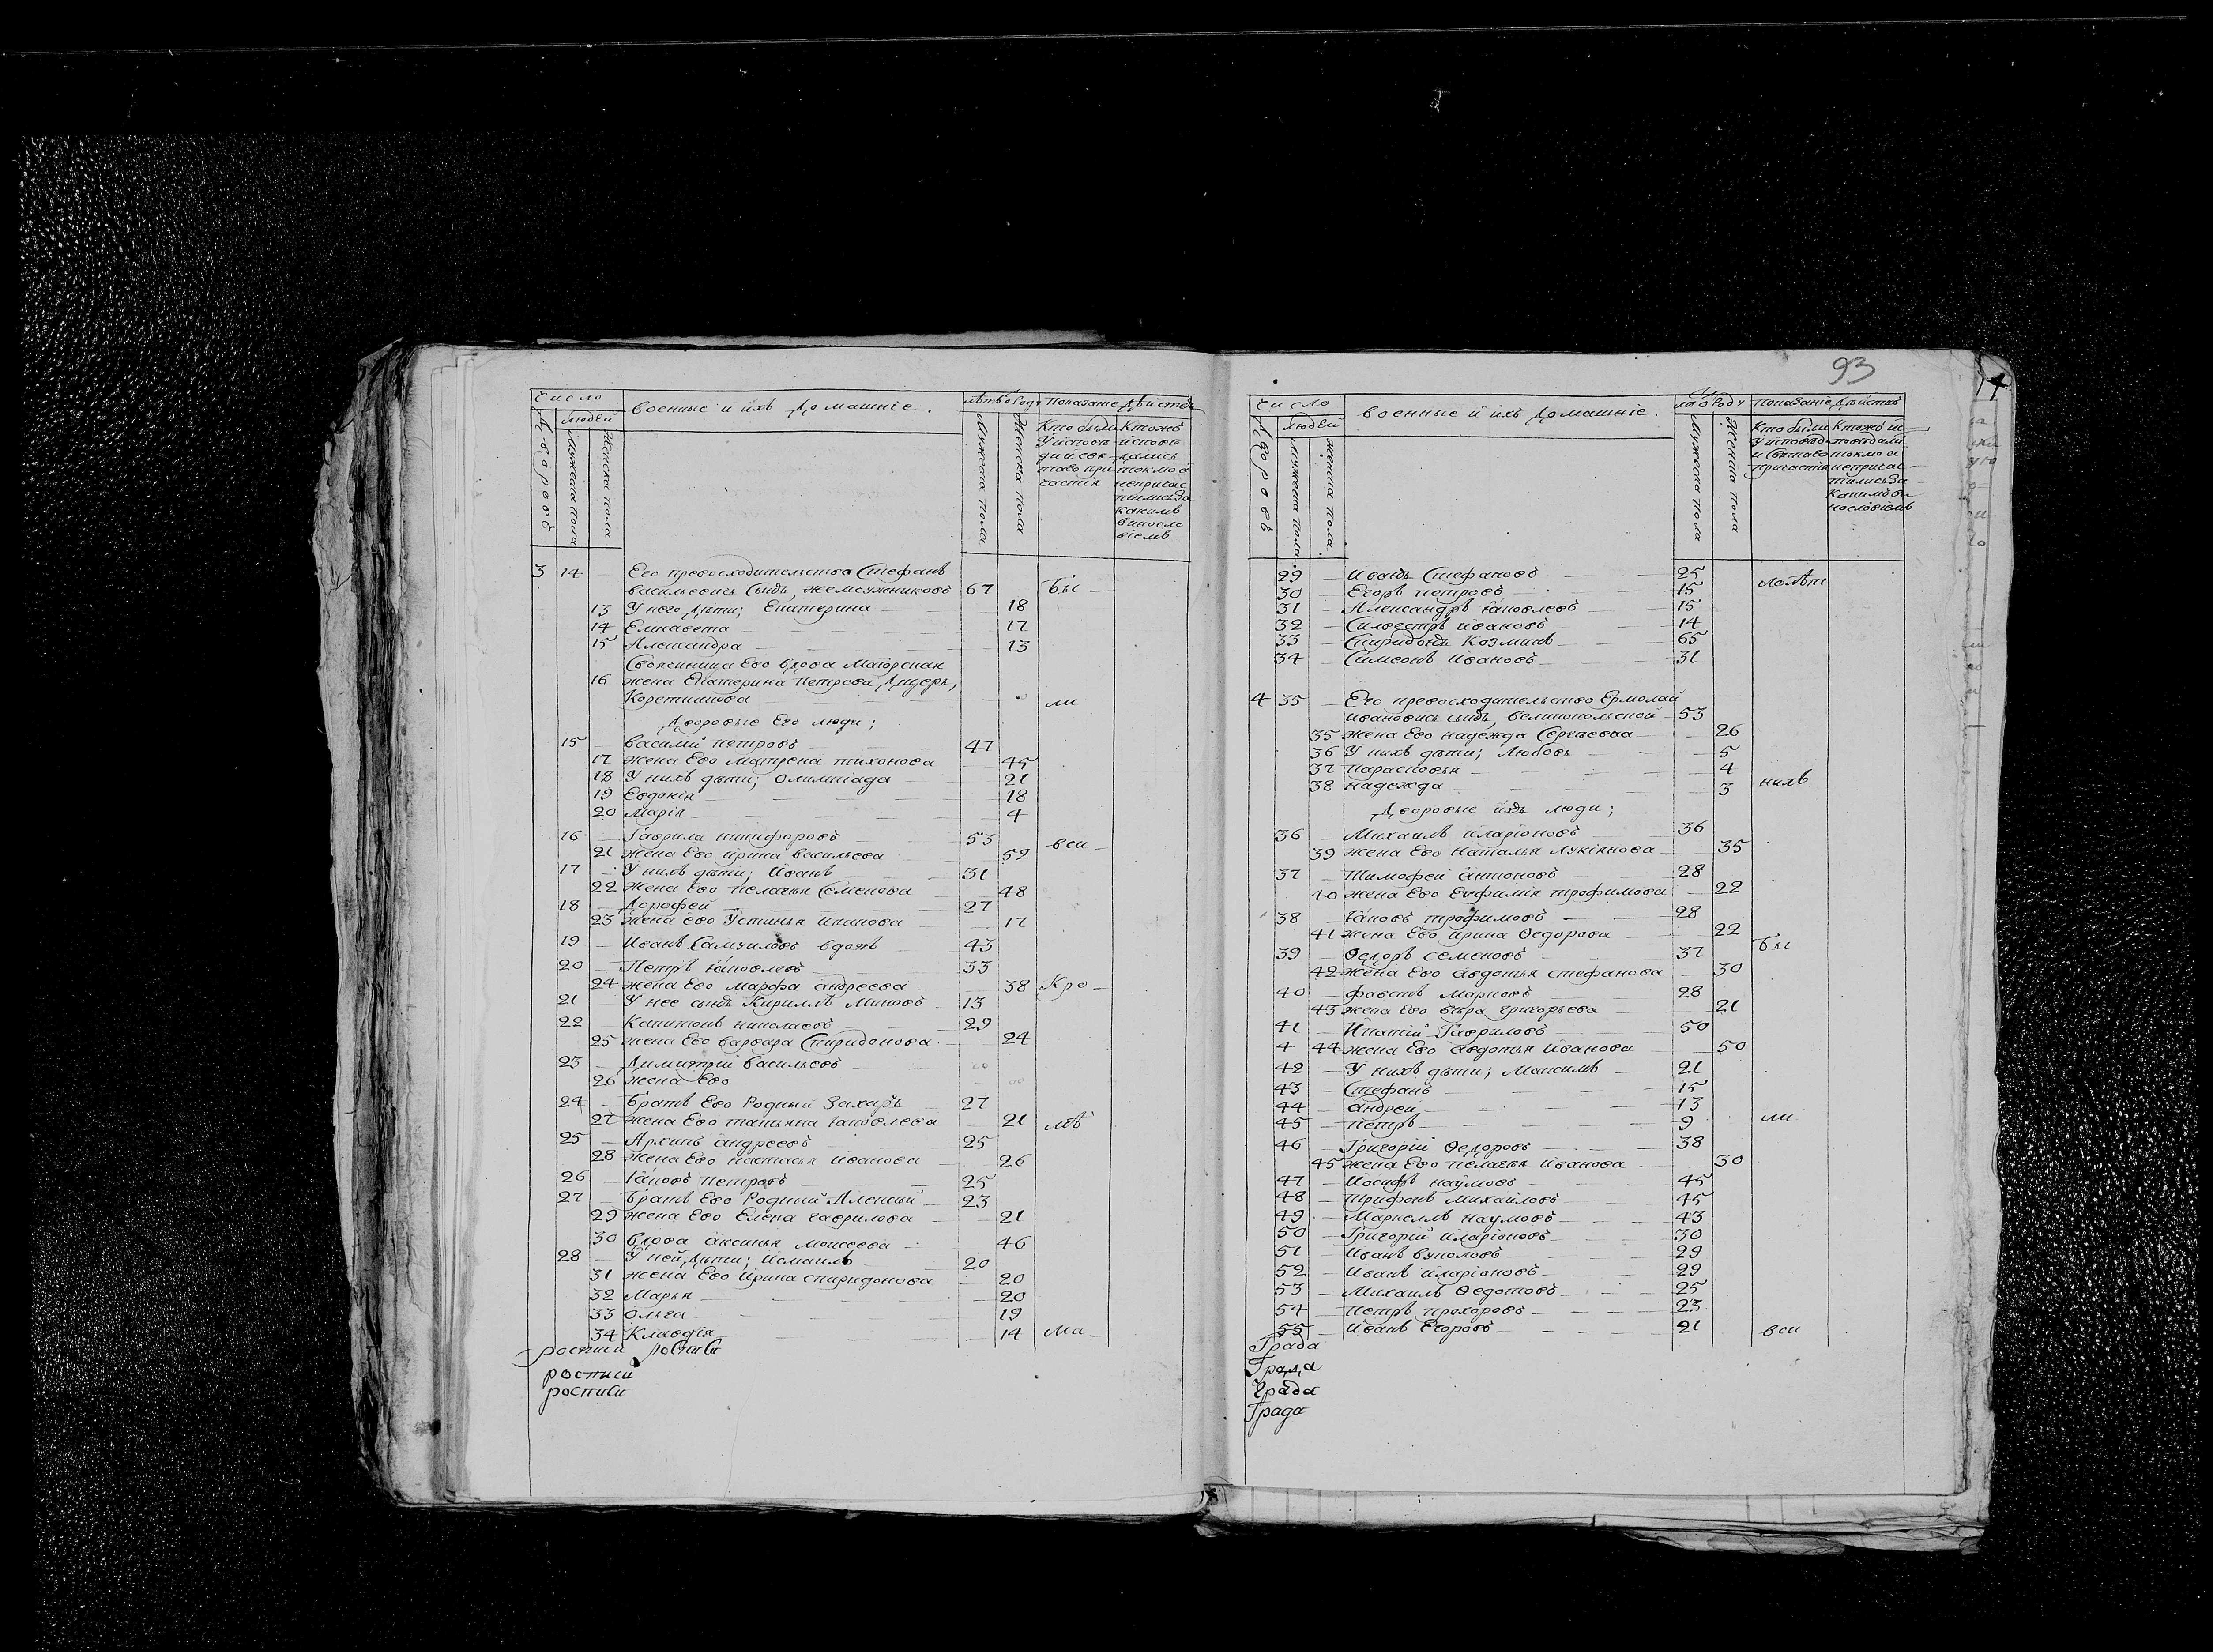 число
людей
Дворовъ
Мужеска пола
Женска пола
военные и ихъ домашніе.
лѣтъ отъ роду
Мужеска пола
Женска пола
Показаніе дѣйства
Кто были у исповѣди и свя-таго при-частія
3 14 — Его превосходительства Стефанъ
васильевичь Сынъ, жемчужниковъ 67 бы —
13 У него дѣти; Екатерина — 18
14 Елисавета — 17
15 Александра — 13
Свояченица Его вдова Маіорская
16 жена Екатерина Петрова Дщерь,
ли
Дворовые Его люди;
15 — василий петровъ 47
17 жена Ево матрена тихонова 45
18 У нихъ дѣти; Олимпіада 21
19 Евдокія — 18
20 марія — 4
16 — Гаврила никифоровъ 53
вси —
21 жена Ево ирина васильева 52
17 — У нихъ дѣти; Иванъ 31
22 жена Ево пелагья Семенова 48
18 — Дорофей 27
23 жена ево Устинья 17
19 — Иванъ Самуиловъ вдовъ 43
20 — Петръ Яковлевъ 33
24 жена Ево марфа андреева 38 Кро —
21 У нее сынъ Кириллъ 13
22 — Капитонъ николаевъ 29
25 жена Ево варвара Спиридонова 24
23 — Димитрій васильевъ — 00
26 жена Ево — 00
24 — братъ Ево Родный Захаръ 27
27 жена Ево татьяна Яковлева 21 мѣ
25 — Архипъ андреевъ 25
28 жена Ево настасья Иванова 26
26 — Яковъ петровъ 25
27 — братъ Ево Родный Алексѣй 23
29 жена Ево Елена гаврилова 21
30 вдова аксинья моисеева 46
28 — У ней дѣти; Исмаилъ 20
31 жена Ево Ирина спиридонова 20
32 Марья — 20
33 Ольга — 19
34 Клавдія — 14 ма —
росписи росписи
росписи
росписи
93
число
людей
Дворовъ
мужеска пола
женска пола
военные и ихъ домашніе.
Мужеска пола
Женска пола
показаніе дѣйства
кто были у исповѣди и святаго причастія
29 — Иванъ Стефановъ 25
лолѣт
30 — Егоръ петровъ 15
31 — Александръ Яковлевъ 15
32 — Силвестръ Ивановъ 14
33 — Спиридонъ Козминъ 65
34 — Симеонъ Ивановъ 31
4 35 — Его превосходительство Ермолай
Ивановичь сынъ, великопольской 53
35 жена Ево надежда Сергеевна 26
36 У нихъ дѣти; Любовь 5
37 парасковья 4
38 надежда — 3 нихъ
Дворовые ихъ люди;
36 — Михаилъ иларіоновъ 36
39 жена Ево наталья Лукіянова 35
37 — Тимофей антоновъ 28
40 жена Ево Евфимія трофимова 22
38 — Яковъ трофимовъ 28
41 жена Ево ирина Ѳедорова 22
бы
39 — Ѳедоръ семеновъ 37
42 жена Ево авдотья стефанова 30
40 — фавстъ марковъ 28
43 жена Ево вѣра григорьева 21
41 — Ипатій Гавриловъ 50
4 44 жена Ево авдотья Иванова 50
42 — У нихъ дѣти; Максимъ 21
43 — Стефанъ 15
44 — андрей 13
45 — петръ 9 ли
46 — Григорій Ѳедоровъ 38
45 жена Ево пелагья Иванова 30
47 — Иосифъ наумовъ 45
48 — Трифонъ Михайловъ 45
49 — Маркеллъ наумовъ 43
50 — Григорій иларіоновъ 30
51 — Иванъ вуколовъ 29
52 — Иванъ иларіоновъ 29
53 — Михаилъ Ѳедотовъ 25
54 — петръ прохоровъ 23
55 — Иванъ Егоровъ 21 вси
Града
Града
Града
Града